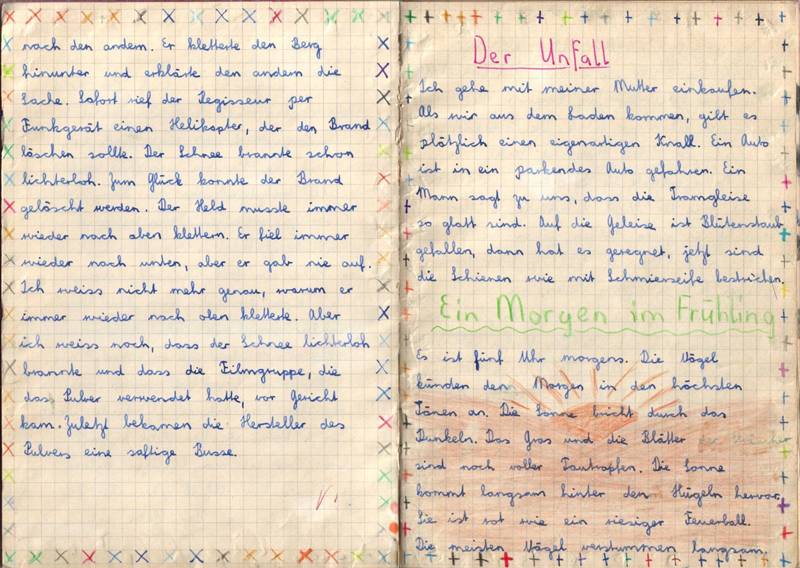 nach den andern. Er kletterte den Berg
hinunter und erklärte den andern die
Sache. Sofort rief der Regisseur per
Funkgerät einen Helikopter, der den Brand
löschen sollte. Der Schnee brannte schon
lichterloh. Zum Glück konnte der Brand
gelöscht werden. Der Held musste immer
wieder nach oben klettern. Er fiel immer
wieder nach unten, aber er gab nie auf.
Ich weiss nicht mehr genau, warum er
immer wieder nach oben kletterte. Aber
ich weiss noch, dass der Schnee lichterloh
brannte und dass die Filmgruppe, die
das Pulver verwendet hatte, vor Gericht
kam. Zuletzt bekamen die Hersteller des
Pulvers eine saftige Busse.
Der Unfall
Ich gehe mit meiner Mutter einkaufen.
Als wir aus dem Laden kommen, gibt es
plötzlich einen eigenartigen Knall. Ein Auto
ist in ein parkendes Auto gefahren. Ein
Mann sagt zu uns, dass die Tramgleise
so glatt sind. Auf die Geleise ist Blütenstaub
gefallen, dann hat es geregnet, jetzt sind
die Schienen wie mit Schmierseife bestrichen.
Ein Morgen im Frühling
Es ist fünf Uhr morgens. Die Vögel
künden den Morgen in den höchsten
Tönen an. Die Sonne bricht durch das
Dunkeln. Das Gras und die Blätter der
sind noch voller Tautropfen. Die Sonne
kommt langsam hinter den Hügeln hervor.
Sie ist rot wie ein riesiger Feuerball.
Die meisten Vögel verstummen langsam.